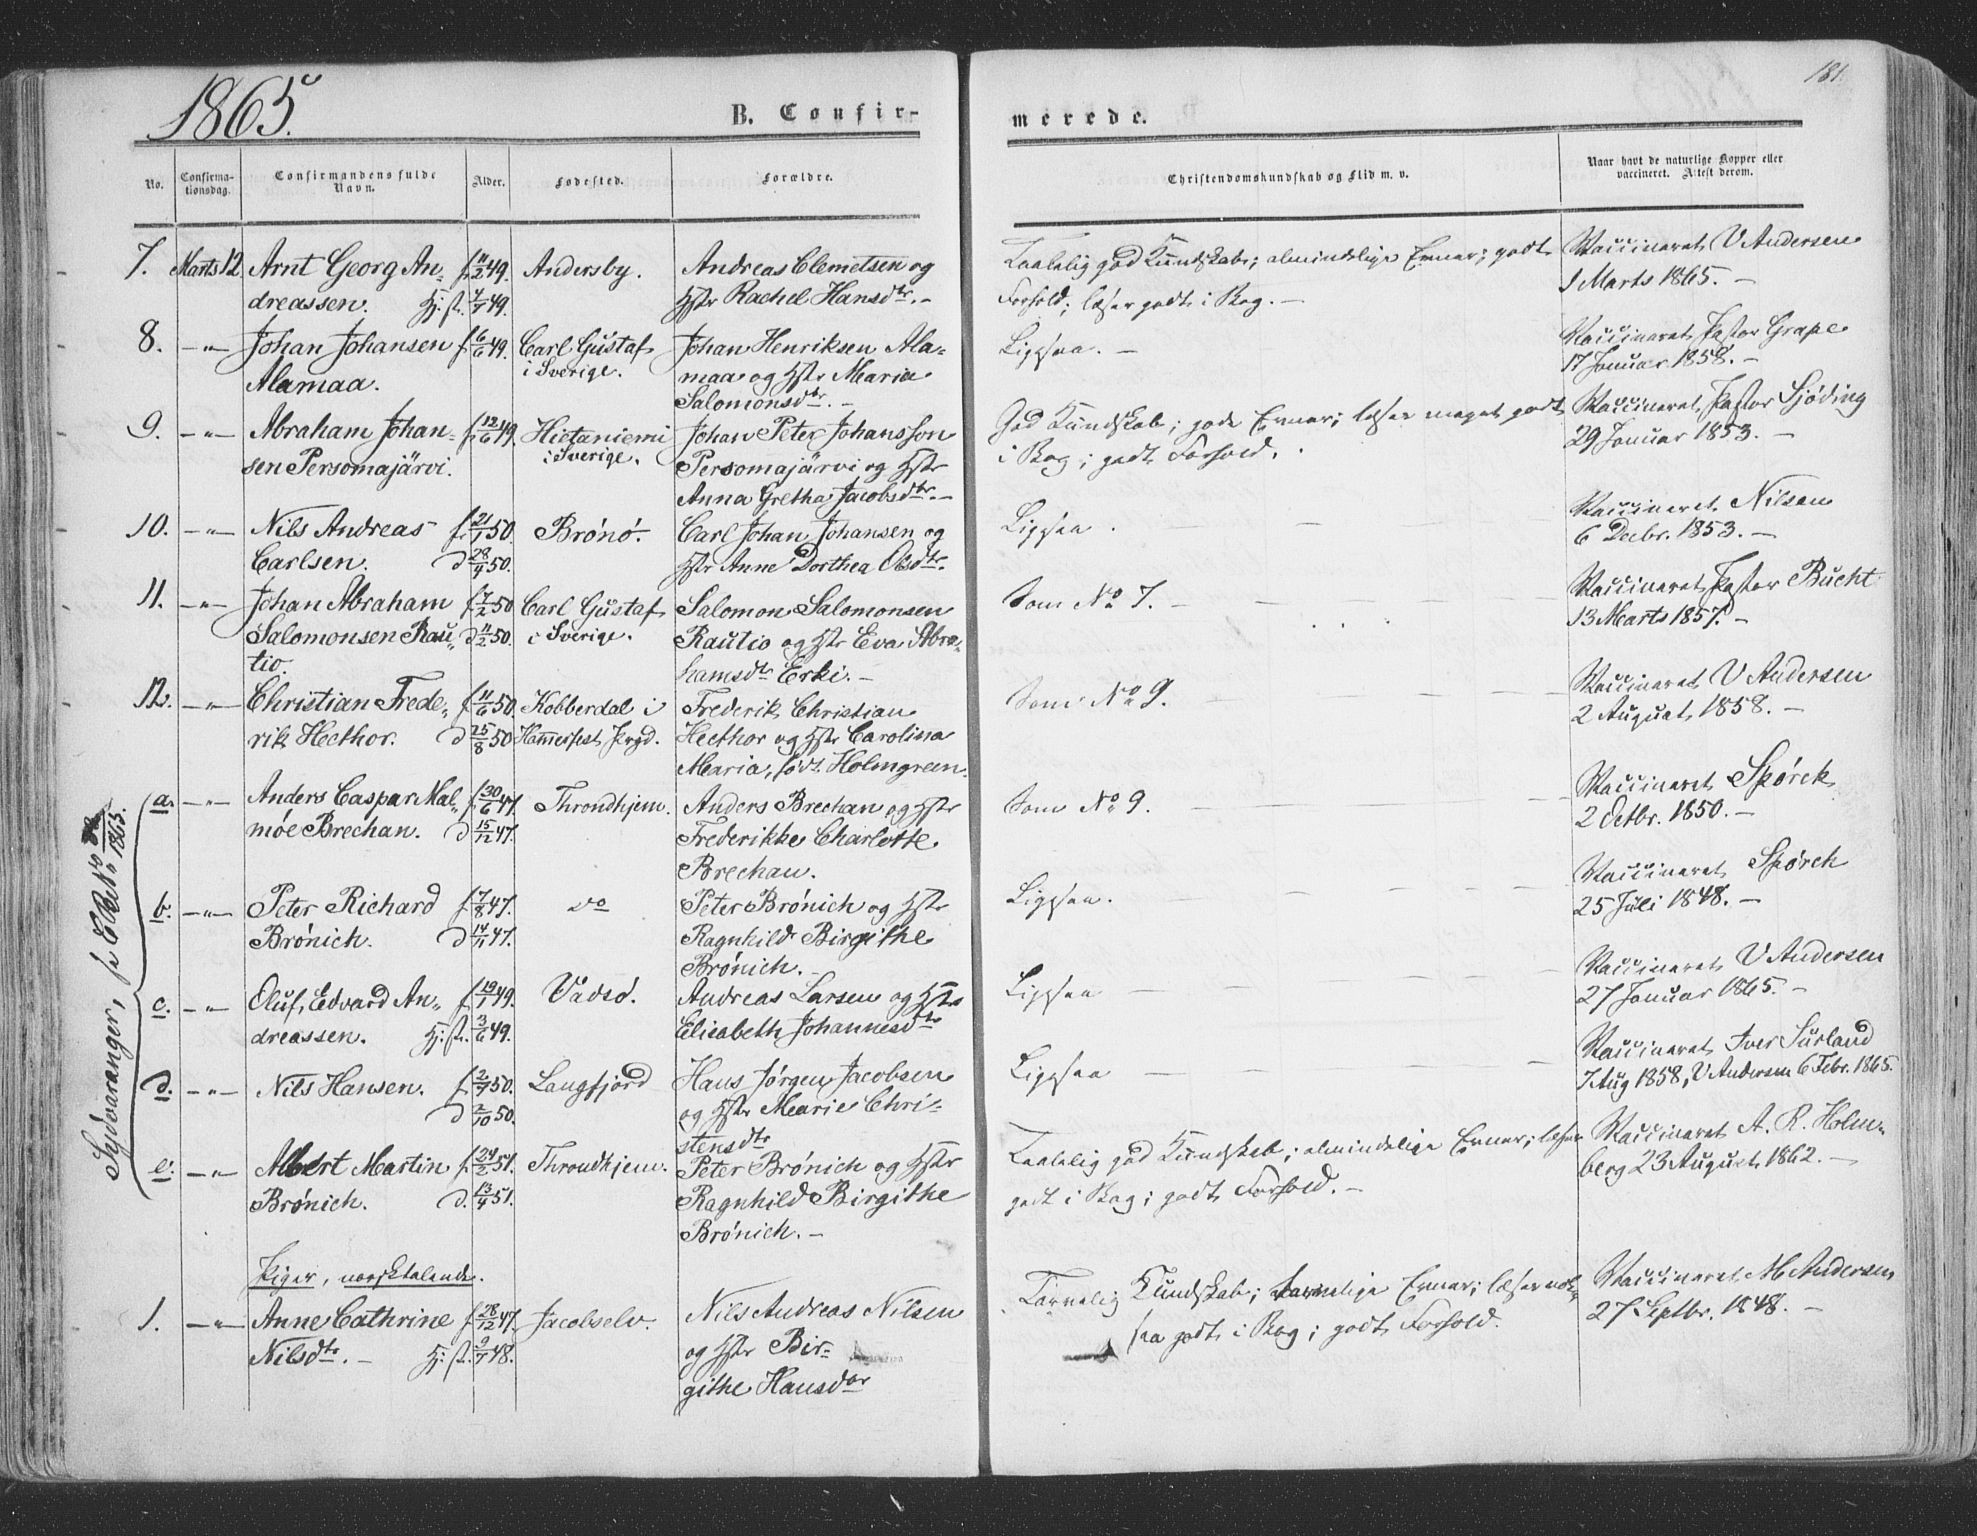 1865.
B. Confir-
merede.
181.
No.
Confirma-
tionsdag.
Confirmandens fulde
Navn.
Alder.
Fødested.
Forældre.
Christendomskundskab og Flid m. v.
Naar havt de naturlige Kopper eller
vaccineret. Attest derom.
7. Marts 12. Arnt Georg An- f. 11/2 49. Andersby. Andreas Clemetsen og
dreassen. Hj: f. 4/7 49. Hstr Rachel Hansdtr. –
Taalelig god Kundskab; almindelige Evner; godt
Forhold; læser godt i Bog. –
Vaccineret V Andersen
1 Marts 1865. –
8. –"– Johan Johansen f. 6/6 49. Carl Gustaf Johan Henriksen Ala-
Alamaa. i Sverige. maa og Hstr Maria
Salomonsdtr. –
Ligesaa. –
Vaccineret, Pastor Grape
17 Januar 1858. –
9. –"– Abraham Johan- f. 12/6 49. Hietaniemi Johan Peter Johansson
sen Persomajärvi. i Sverige. Persomajärvi og Hstr
Anna Gretha Jacobsdtr. –
God Kundskab; gode Evner; læser meget godt
i Bog; godt Forhold.
Vaccineret, Pastor Sjöding
29 Januar 1853. –
10. –"– Nils Andreas f. 21/1 50. Brönö. Carl Johan Johansen og
Carlsen. d 28/4 50. Hstr Anne Dorthea Olsdtr.
Ligesaa. –
Vaccineret Nilsen
6 Decbr. 1853. –
11. –"– Johan Abraham f. 7/2 50 Carl Gustaf Salomon Salomonsen
Salomonsen Rau- d 11/2 50. i Sverige. Rautio og Hstr Eva Abra-
tio. hamsdtr Erki. –
Som No 7. –
Vaccineret, Pastor Bucht
13 Marts 1857. –
12. –"– Christian Frede- f. 11/6 50 Kobberdal i Frederik Christian
rik Hecthor. d 25/8 50 Hammerfest Prgd. Hecthor og Hstr Carolina
Maria, født Holmgreen.
Som No 9. –
Vaccineret V Andersen
2 August 1858. –
Sydvaranger, 1865.
a. –"– Anders Caspar Mal- f. 30/6 47. Throndhjem. Anders Brechan og Hstr
möe Brechan. d 15/12 47. Frederikke Charlotte
Brechan.
Som No 9. –
Vaccineret Spörck
2 Octbr. 1850. –
b. –"– Peter Richard f. 7/8 47. do Peter Brönich og Hstr
Brönich. d 14/11 47. Ragnhild Birgithe
Brönich. –
Ligesaa. –
Vaccineret Spörck
25 Juli 1848. –
c. –"– Oluf Edvard An- f. 19/1 49. Vadsö. Andreas Larsen og Hstr
dreassen. Hj: f. 3/6 49. Elisabeth Johannesdtr
Ligesaa –
Vaccineret V Andersen
27 Januar 1865. –
d. –"– Nils Hansen. f. 2/7 50. Langfjord Hans Jörgen Jacobsen
d 2/10 50. og Hstr Marie Chri-
stensdtr
Ligesaa –
Vaccineret Iver Surland
7 Aug 1858, V Andersen 6 Febr. 1865.
e. –"– Albert Martin f. 24/2 51. Throndhjem. Peter Brönich og Hstr
Brönich. d. 13/4 51. Ragnhild Birgithe
Brönich. –
Taalelig god Kundskab; almindelige Evner; læser
godt i Bog; godt Forhold. –
Vaccineret A. R. Holm-
berg 23 August 1862. –
Piger, norsktalende.
1. –"– Anne Cathrine f. 28/12 47. Jacobselv. Nils Andreas Nilsen
Nilsdtr. – Hj: f. 9/7 48. og Hstr Bir-
githe Hansdtr
Tarvelig Kundskab; tarvelige Evner; læser nok
saa godt i Bog; godt Forhold.
Vaccineret M Andersen
27 Septbr. 1848. –